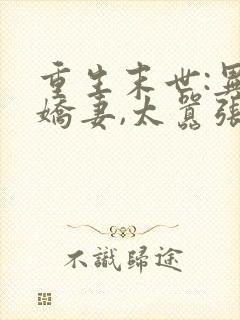 重生末世:異
嬌妻,太囂張
不識歸途